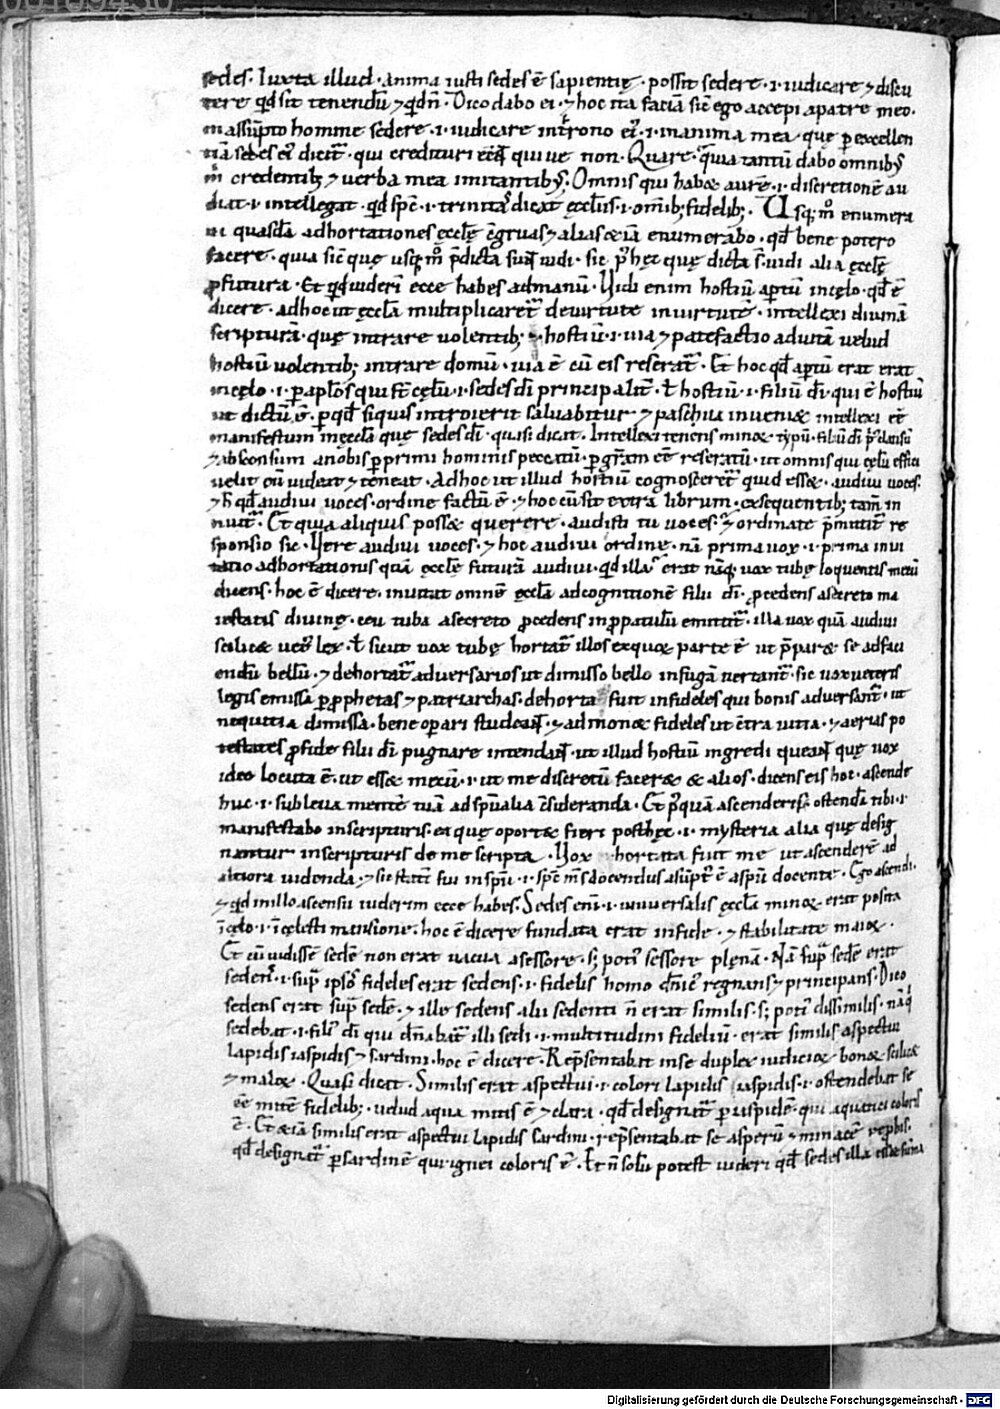 sedes. Iuxta illud. anima iusti sedes ē sapientię. possit sedere .i. iudicare ⁊ discu
tere qd sit tenendū ⁊ qd n̄. Dico dabo ei. ⁊ hoc ita faciā sic̄ ego accepi a patre meo.
in assūpto homine sedere .i. iudicare in trono ei .i. in anima mea. quę p excellen
tiā sedes ei dicit. qui credituri qui uę non. Quare. quia tantū dabo omnib;
credentib; ⁊ verba mea imitantib;. Omnis qui habet aurē .i. discretionē au
diat .i. intellegat. qd spc .i. trinitas dicat ęccliis .i. omīb; fidelib;. Usq; m̊ enumera
ui quasdā adhortationes ęcclę ⁊ alias etiā enumerabo. qd bene potero
facere. quia sic̄ quę usq; m̊ p̄dicta uidi. sic p hęc quę dicta s̄. uidi alia ęcclę
pfutura. Et qd uiderim ecce habes ad manū. Vidi enim hostiū aptū in cęlo. qd ē
dicere. ad hoc ut ęccla multiplicaret de uirtute in uirtutē. intellexi diuinā
scripturā. quę intrare uolentib; hostiū .i. uia ⁊ patefactio ad uitā uelud
hostiū uolentib; intrare domū. uia ē cū eis reserat. Et hoc qd aptū erat erat
in cęlo .i. p aplos qui st̄ cęlū .i. sedes dī principalit. ł hostiū .i. filiū dī. qui ē hostiū
ut dictū ē. p qd siquis introierit saluabitur. ⁊ paschua inueniet intellexi ēē
manifestum in ęccla quę sedes dī. quasi dicat. Intellexi
⁊ absconsum a nobis p primi hominis peccatū. p gr̄am ēē reseratū. ut omnis qui cęlū effici
uelit eū uideat ⁊ teneat. Ad hoc ut illud hostiū cognosceret quid esset. audiui uoces.
⁊ qd audiui uoces. ordine factū ē. ⁊ hoc cū sit extra librum. exsequentib; tam̄ in
nuit. Et quia aliquis posset querere. audisti tu uoces. ⁊ ordinate p̄mittit re
sponsio sic. Vere audiui uoces. ⁊ hoc audiui ordine. nā prima uox .i. prima inui
tatio adhortationis quā ęcclę futurā audiui. qd illa erat nāq; uox tubę loquentis mecū
dicens. hoc ē dicere. inuitat omnē ęcclā ad cognitionē filii dī. pcedens a secreto ma
iestatis diuinę. ceu tuba a secreto pcedens in ppatulū emittit. illa uox quā audiui
scilicet uet lex. ł sicut uox tubę hortat illos ex quoȝ parte ē ut p̄paret se ad faci
endū bellū. ⁊ dehortat aduersarios ut dimisso bello in fugā uertant. sic uox ueteris
legis emissa p pphetas ⁊ patriarchas. dehorta fuit infideles qui bonis aduersant. ut
nequitia dimissa. bene opari studeant. ⁊ admonet fideles ut c̄tra uitia. ⁊ aerias po
testates p fide filii dī pugnare intendant. ut illud hostiū ingredi queant quę uox
ideo locuta ē. ut esset mecū .i. ut me discretū faceret et alios. dicens eis hoc. ascende
huc .i. subleua mentē tuā ad spūalia c̄sideranda. Et pquā ascenderis. ostendā tibi .i.
manifestabo in scripturis. ea quę oportet fieri post hęc .i. mysteria alia quę desig
nantur in scripturis de me scripta. Vox hortata fuit me ut ascenderē ad
altiora uidenda. ⁊ sic statī fui in spū .i. docendus asūpt ē a spū docente. Ego ascendi.
⁊ qd in illo ascensu uiderim ecce habes. Sedes enī .i. uniuersalis ęccla minoȝ. erat posita
ī cęlo .i. ī cęlesti mansione. hoc ē dicere fundata erat in fide. ⁊ stabilitate maioȝ.
Et cū uidissē sedē non erat uacua a sessore. s; poti sessore plęna. Nā sup sedē erat
sedens .i. sup ipsos fideles erat sedens .i. fidelis homo dn̄ic regnans ⁊ principans. Dico
sedens erat sup sedē. ⁊ ille sedens alii sedenti n̄ erat similis. s; poti dissimilis. nāq;
sedebat .i. fili dī qui dn̄abat illi sedi .i. multitudini fideliū. erat similis aspectui
lapidis iaspidis ⁊ sardini. hoc ē dicere. Rep̄sentabat in se duplex iudiciū et bonoȝ scilicet
⁊ maloȝ. Quasi dicat. Similis erat aspectui .i. colori lapidis iaspidis .i. ostendebat se
ēē mitē fidelib; uelud aqua mitis ē ⁊ clara. qd designat p iaspidē. qui aquatici coloris
ē. Et etiā similis erat aspectui lapidis sardini. rep̄sentabat se asperū ⁊ minacē repbis.
qd designat p sardinē qui ignei coloris ē. Et n̄ solū potest uideri qd sedes illa
Digitalisierung gefördert durch die Deutsche Forschungsgemeinschaft - DFG